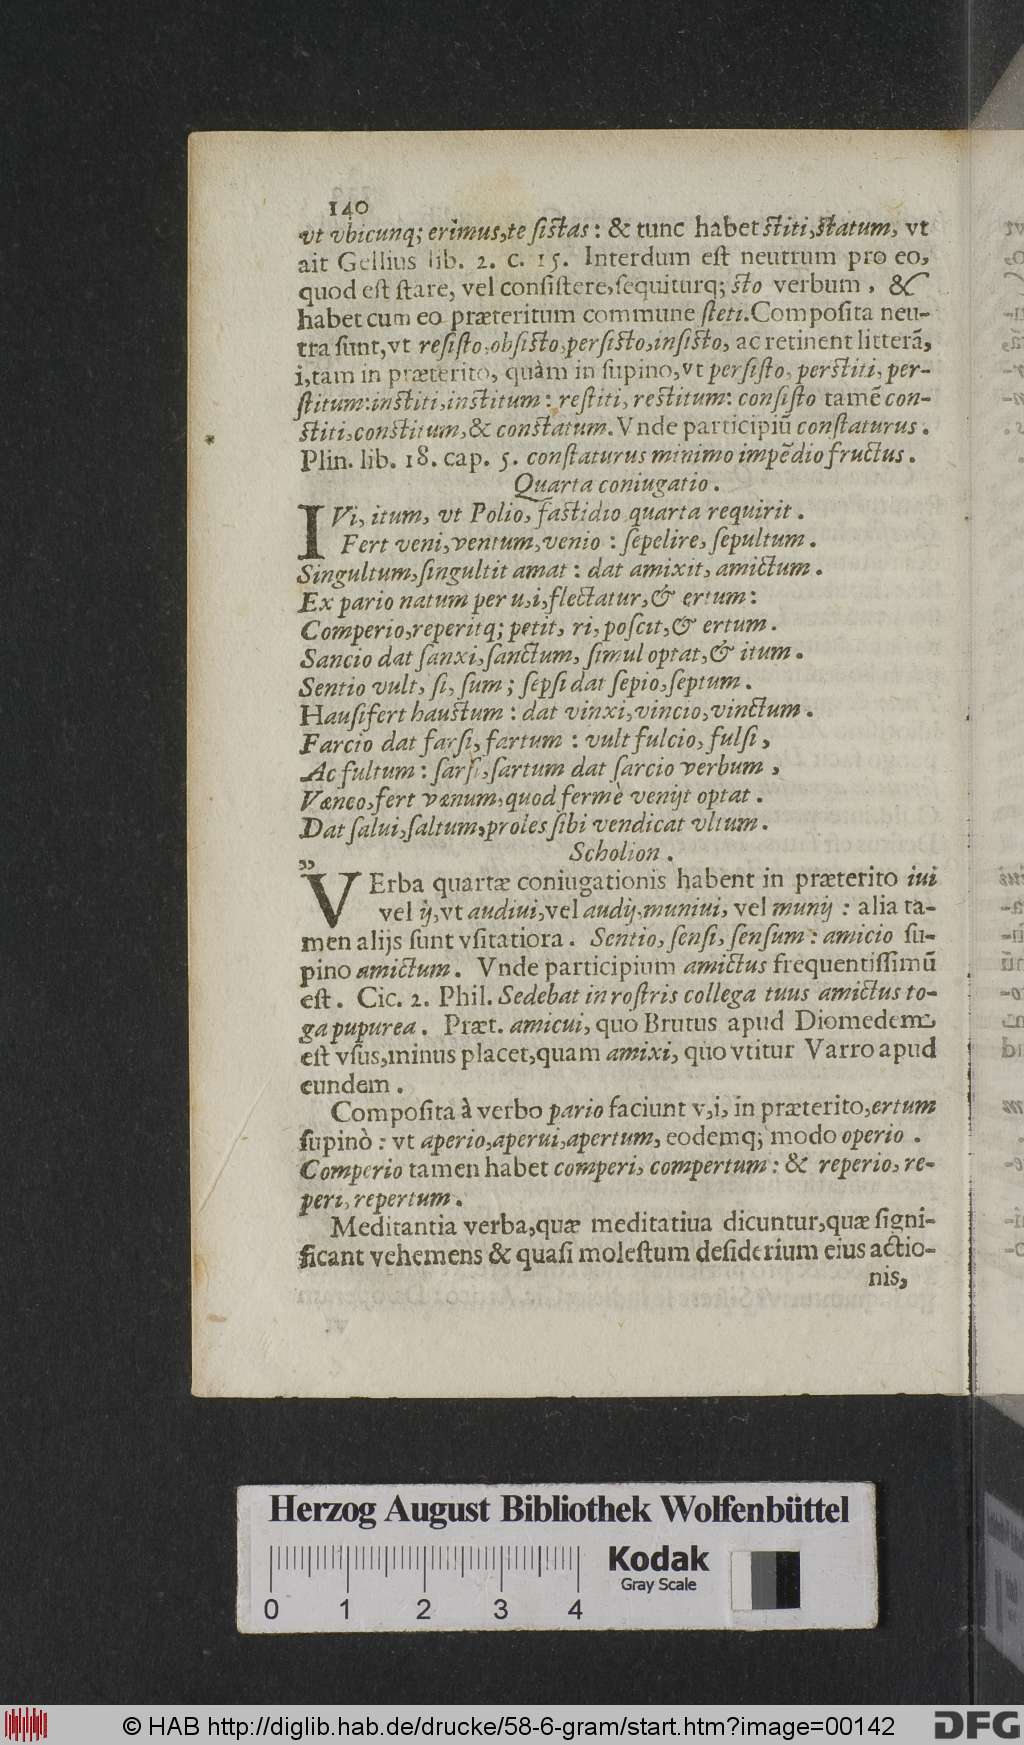 140
vt vbicunq; erimus,te ſiſtas: & tunc habet ſtiti,ſtatum, vt
ait Gellius lib. 2. c. 15. Interdum eſt neutrum pro eo,
quod eſt ſtare, vel conſiſtere,ſequiturq; ſto verbum, &
habet cum eo præteritum commune ſteti.Compoſita neu-
tra ſunt,vt reſiſto,obſiſto,perſiſto,inſiſto, ac retinent litterã,
i,tam in præterito, quàm in ſupino,vt perſiſto, perſtiti, per-
ſtitum:inſtiti,inſtitum: reſtiti, reſtitum: conſiſto tamẽ con-
ſtiti,conſtitum,& conſtatum.Vnde participiũ conſtaturus.
Plin. lib. 18. cap. 5. conſtaturus minimo impẽdio fructus.
Quarta coniugatio.
IVi, itum, vt Polio, faſtidio quarta requirit.
Fert veni,ventum,venio: ſepelire, ſepultum.
Singultum,ſingultit amat: dat amixit, amictum.
Ex pario natum per u,i,flectatur,& ertum:
Comperio,reperitq; petit, ri, poſcit,& ertum.
Sancio dat ſanxi,ſanctum, ſimul optat,& itum.
Sentio vult, ſi, ſum; ſepſi dat ſepio,ſeptum.
Hauſi fert hauſtum: dat vinxi,vincio,vinctum.
Farcio dat farſi, fartum: vult fulcio, fulſi,
Ac fultum: ſarſi,ſartum dat ſarcio verbum,
Væneo,fert vænum,quod fermè venijt optat.
Dat ſalui,ſaltum,proles ſibi vendicat vltum.
Scholion.
„
VErba quartæ coniugationis habent in præterito iui
vel ij,vt audiui,vel audij,muniui, vel munij: alia ta-
men alijs ſunt vſitatiora. Sentio, ſenſi, ſenſum: amicio ſu-
pino amictum. Vnde participium amictus frequentiſſimũ
eſt. Cic. 2. Phil. Sedebat in roſtris collega tuus amictus to-
ga pupurea. Præt. amicui, quo Brutus apud Diomedem
eſt vſus,minus placet,quam amixi, quo vtitur Varro apud
eundem.
Compoſita à verbo pario faciunt v,i, in præterito,ertum
ſupinò: vt aperio,aperui,apertum, eodemq; modo operio.
Comperio tamen habet comperi, compertum: & reperio, re-
peri, repertum.
Meditantia verba,quæ meditatiua dicuntur,quæ ſigni-
ficant vehemens & quaſi moleſtum deſiderium eius actio-
nis,
Herzog August Bibliothek Wolfenbüttel
Kodak
Gray Scale
0 1 2 3 4
© HAB http://diglib.hab.de/drucke/58-6-gram/start.htm?image=00142
DFG